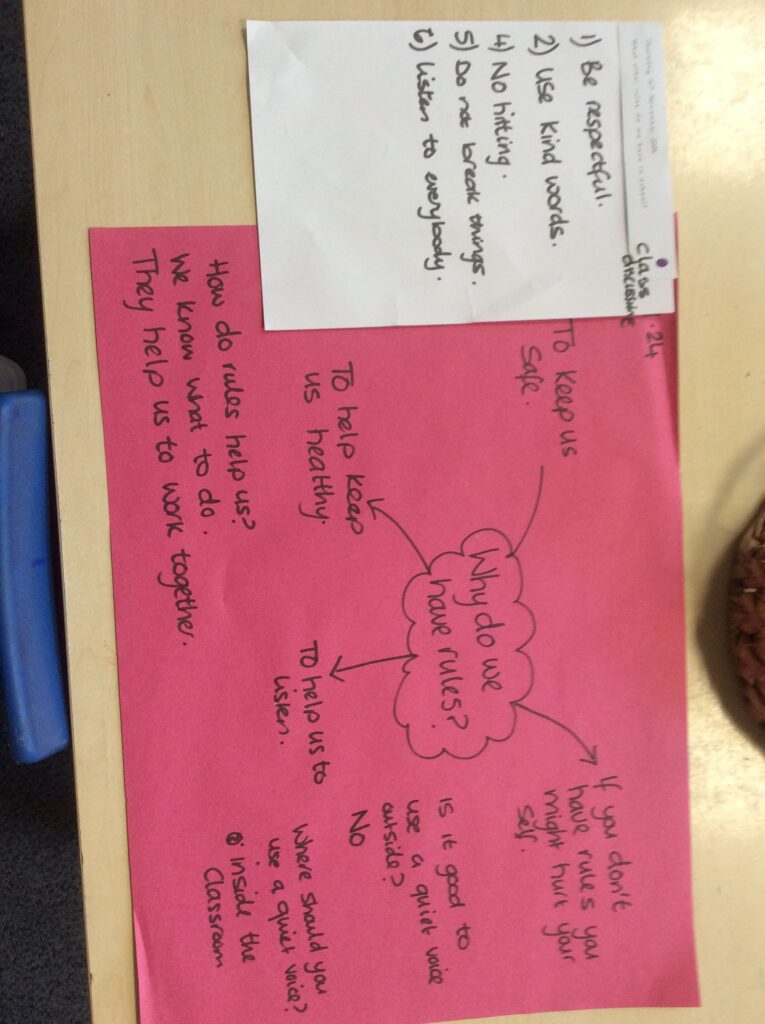 Thursday 5th November 2024
What other rules do we have in school?
1) Be respectful.
2) Use kind words.
4) No hitting.
5) Do not break things.
6) Listen to everybody.
class
discussion
.24
To keep us
safe.
To help keep
us healthy.
Why do we
have rules?
To help us to
listen.
If you don't
have rules you
might hurt your
self.
Is it good to
use a quiet voice
outside?
No
Where should you
use a quiet voice?
inside the
Classroom
How do rules help us?
We know what to do.
They help us to work together.